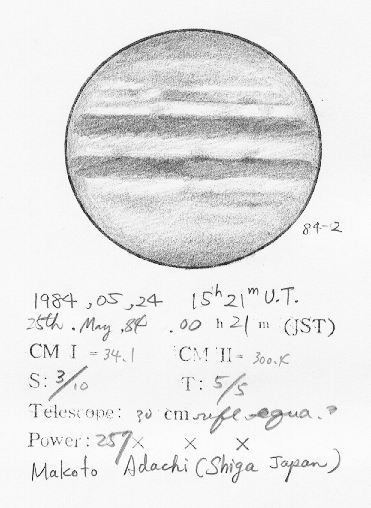 84-2
1984, 05, 24 15h 21m U.T.
25th. May, 84 .00 h 21 m (JST)
CM I = 34.1 CM II = 300.
S: 3/10 T: 5/5
Telescope: 30 cm refl.
Power: 257× × ×
Makoto Adachi (Shiga Japan)